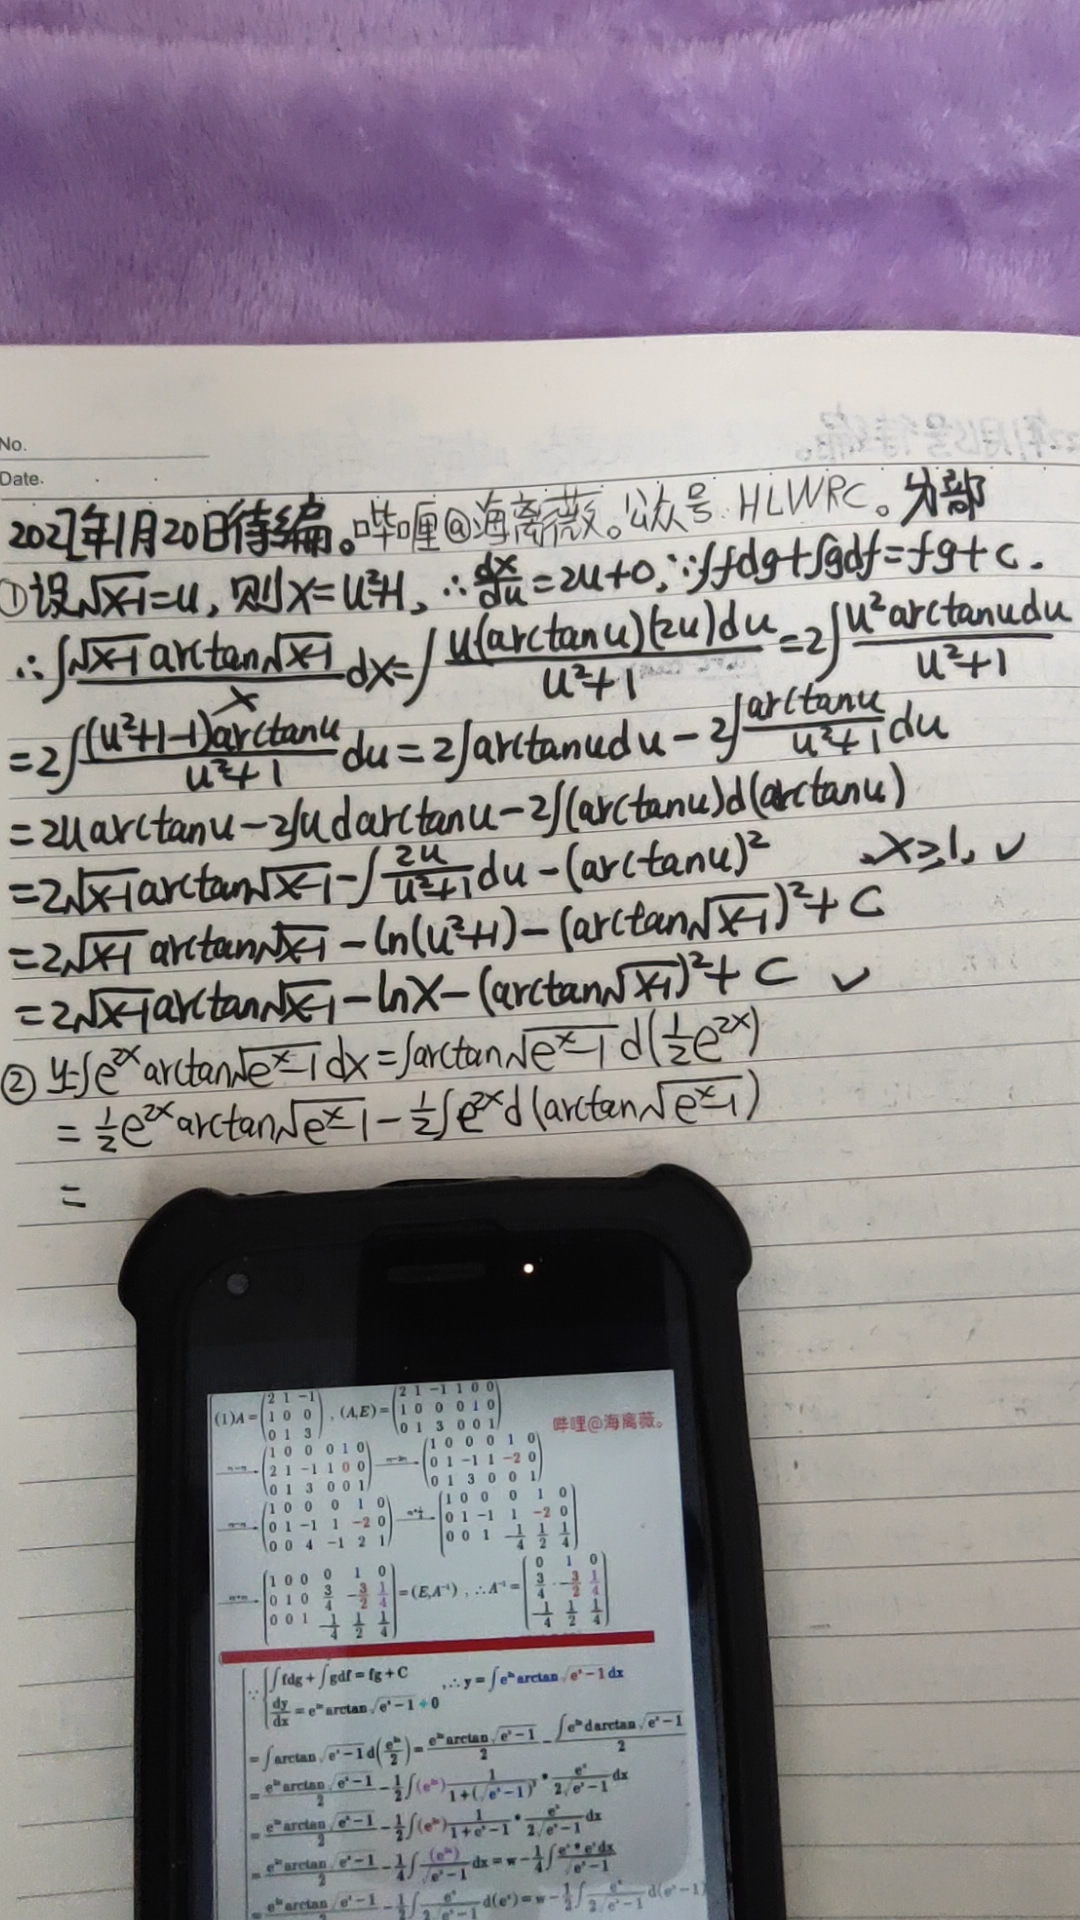 No.
Date.
2022年1月20日待编。哔哩@海离薇。公众号HLWRC。分部
①设√(x-1)=u, 则x=u²+1, ∴dx/du=2u+0, ∵∫fdg+∫gdf=fg+C.
∴∫(√(x-1) arctan√(x-1))/x dx=∫(u(arctanu)(2u)du)/(u²+1)=2∫(u²arctanudu)/(u²+1)
=2∫((u²+1-1)arctanu)/(u²+1) du=2∫arctanudu-2∫(arctanu)/(u²+1) du
=2uarctanu-2∫udarctanu-2∫(arctanu)d(arctanu)
=2√(x-1)arctan√(x-1)-∫2u/(u²+1) du-(arctanu)² ,x≥1,✓
=2√(x-1)arctan√(x-1)-ln(u²+1)-(arctan√(x-1))²+C
=2√(x-1)arctan√(x-1)-lnx-(arctan√(x-1))²+C ✓
② y=∫e^(2x)arctan√(e^x-1)dx=∫arctan√(e^x-1)d(½e^(2x))
=½e^(2x)arctan√(e^x-1)-½∫e^(2x)d(arctan√(e^x-1))
=
(1)A=(2 1 -1; 1 0 0; 0 1 3), (A,E)=(2 1 -1 1 0 0; 1 0 0 0 1 0; 0 1 3 0 0 1) 哔哩@海离薇。
→(1 0 0 0 1 0; 2 1 -1 1 0 0; 0 1 3 0 0 1)→(1 0 0 0 1 0; 0 1 -1 1 -2 0; 0 1 3 0 0 1)
→(1 0 0 0 1 0; 0 1 -1 1 -2 0; 0 0 4 -1 2 1)→(1 0 0 0 1 0; 0 1 -1 1 -2 0; 0 0 1 -1/4 1/2 1/4)
→(1 0 0 0 1 0; 0 1 0 3/4 -3/2 1/4; 0 0 1 -1/4 1/2 1/4)=(E,A⁻¹), ∴A⁻¹=(0 1 0; 3/4 -3/2 1/4; -1/4 1/2 1/4)
∵{∫fdg+∫gdf=fg+C ,∴y=∫e^(2x)arctan√(e^x-1)dx
dy/dx=e^(2x)arctan√(e^x-1)+0
=∫arctan√(e^x-1)d(e^(2x)/2)=(e^(2x)arctan√(e^x-1))/2-(∫e^(2x)darctan√(e^x-1))/2
=(e^(2x)arctan√(e^x-1))/2-½∫(e^(2x))1/(1+(√(e^x-1))²)•e^x/(2√(e^x-1))dx
=(e^(2x)arctan√(e^x-1))/2-½∫(e^(2x))1/(1+e^x-1)•e^x/(2√(e^x-1))dx
=(e^(2x)arctan√(e^x-1))/2-¼∫(e^(2x))/√(e^x-1)dx=w-¼∫(e^x•e^xdx)/√(e^x-1)
=(e^(2x)arctan√(e^x-1))/2-½∫e^x/(2√(e^x-1))d(e^x)=w-½∫e^x/(2√(e^x-1))d(e^x-1)